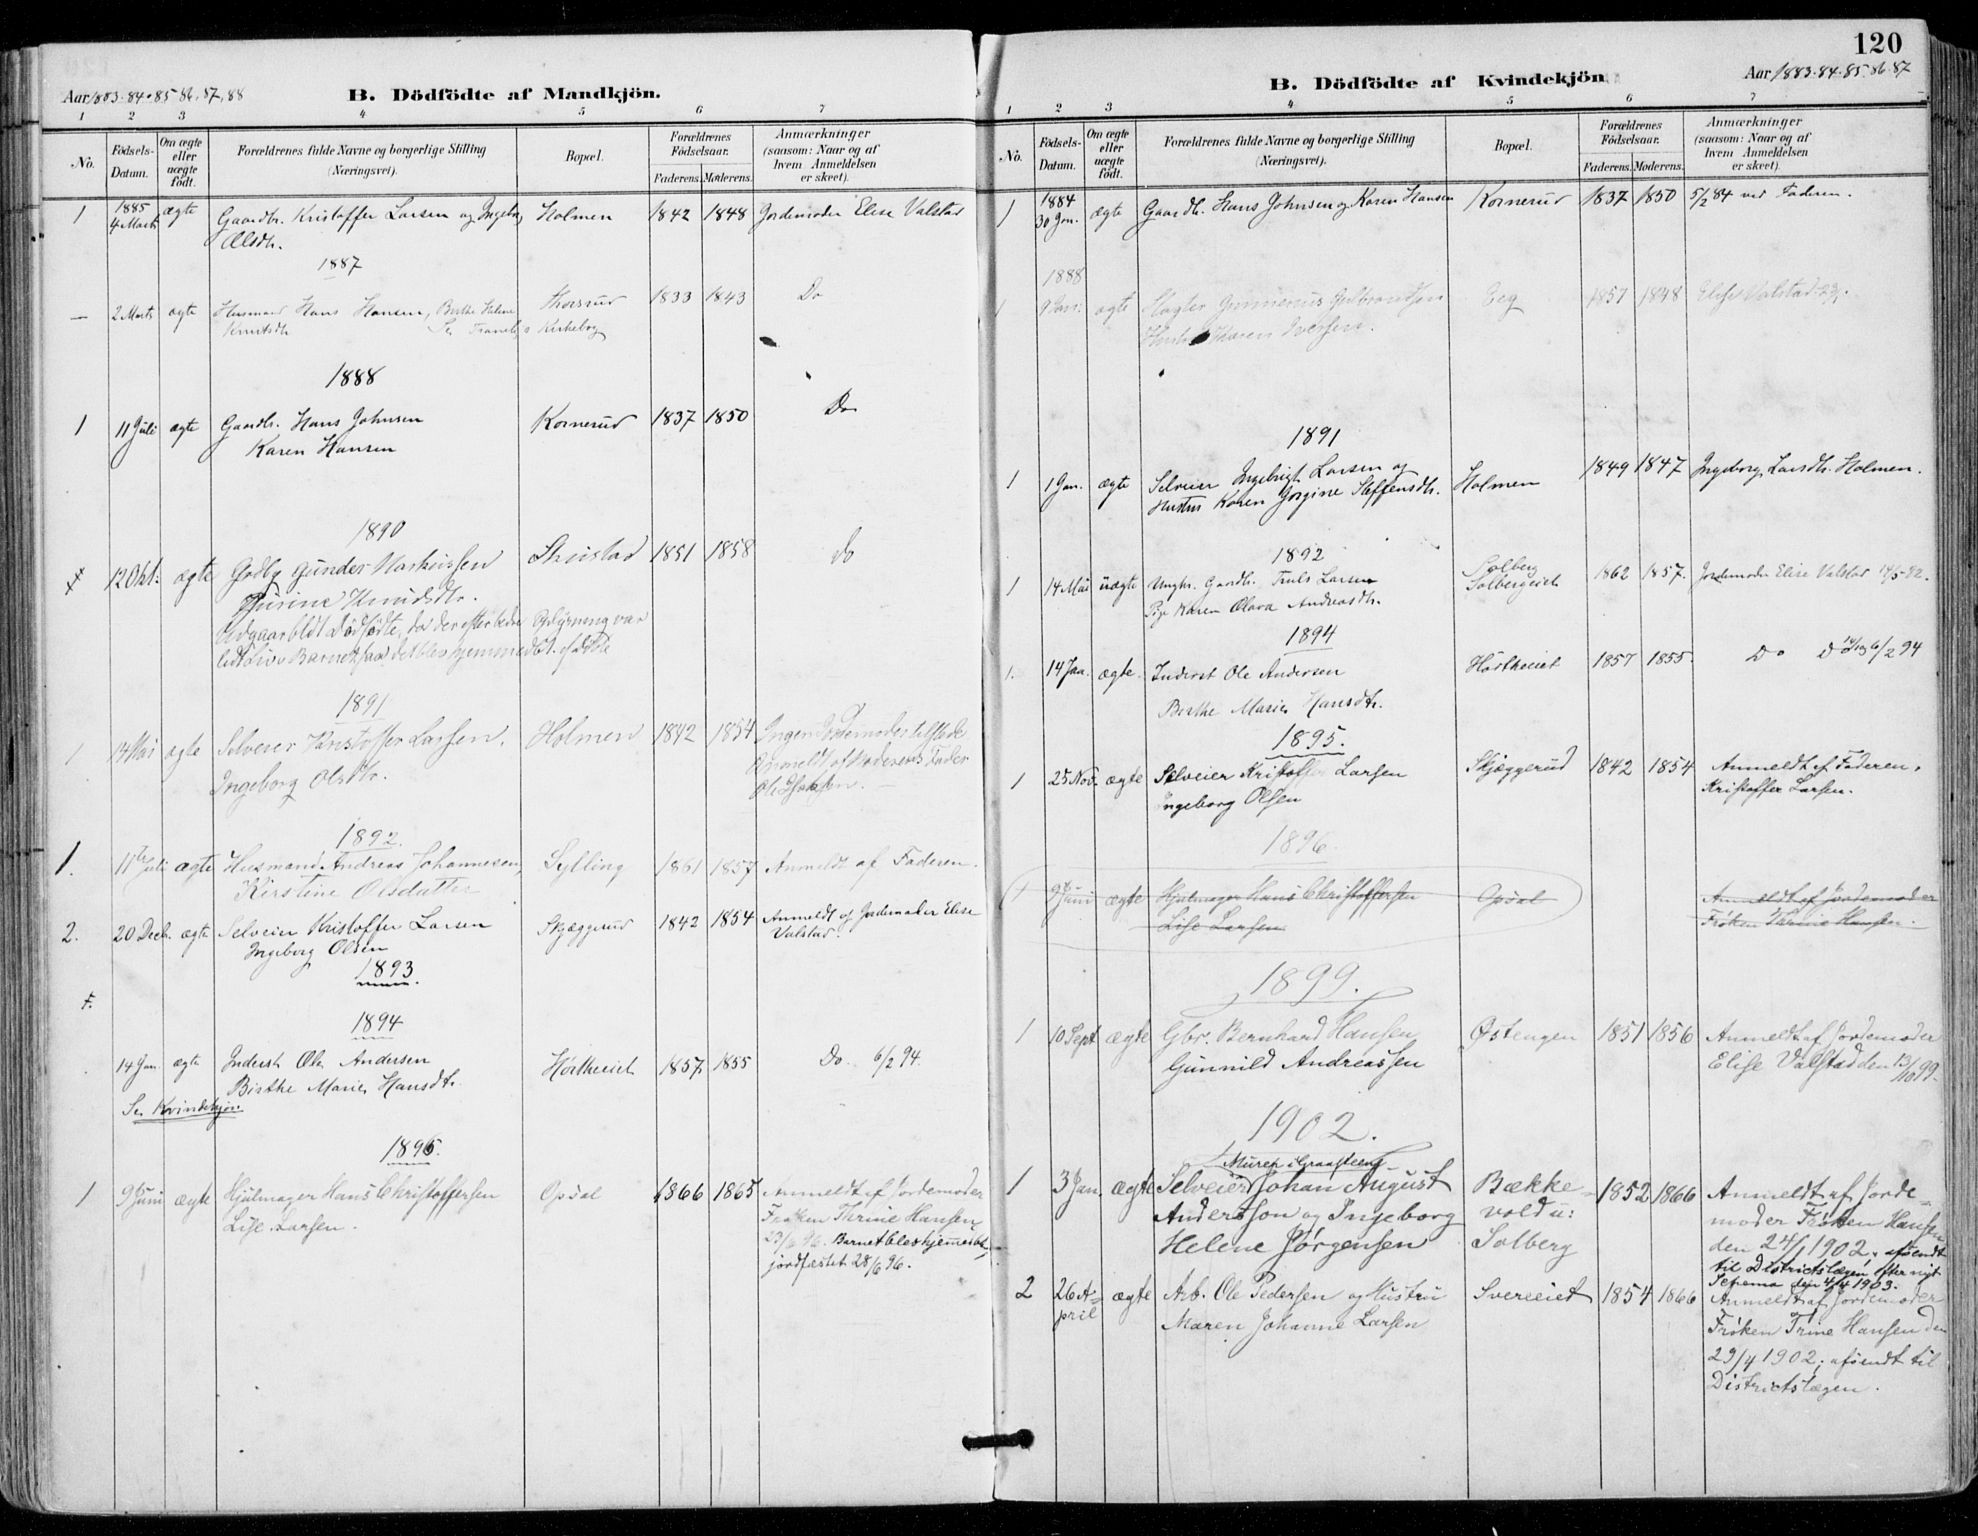 Aar 1883-84-85-86-87-88
B. Dödfödte af Mandkjön.
1 2 3 4 5 6 7
No. Födsels-Datum. Om ægte eller uægte födt. Forældrenes fulde Navne og borgerlige Stilling (Næringsvei). Bopæl. Forældrenes Födselsaar. Faderens. Moderens. Anmærkninger (saasom: Naar og af hvem Anmeldelsen er skeet).
1885
1 4 Marts ægte Gaardbr. Kristoffer Larsen og Ingeborg Holmen 1842 1848 Jordemoder Elise Valstad
Olsdtr.
1887
— 2 Marts ægte Husmand Hans Hansen, Berthe Helene Thorsrud 1833 1843 Do
Knutsdtr Se Kirkebog
1888
1 11 Juli ægte Gaardbr. Hans Johnsen Kornerud 1837 1850 Do
Karen Hansen
1890
12 Okt. ægte Grdbr Gunder Markussen 1851 1858 Do
Knudsdtr.
1891
1 14 Mai ægte Selveier Kristoffer Larsen. Holmen 1842 1854 Ingen Jordemoder tilstede
Ingeborg Olsdtr. Anmeldt af Moderens Fader
1892.
1. 11te Juli ægte Husmand Andreas Johannesen, Sylling 1861 1857 Anmeldt af Faderen.
Kirstine Olsdatter
2. 20 Decb. ægte Selveier Kristoffer Larsen Skjæggerud 1842 1854 Anmeldt af Jordemoder Elise
Ingeborg Olsen Valstad.
1893.
1894
14 Jan ægte Inderst Ole Andersen Hørtheeiet 1857 1855 Do 6/2 94.
Birthe Marie Hansdtr.
Se Kvindekjøn
1896.
1 9 Juni ægte Hjulmager Hans Christoffersen Opsal 1866 1865 Anmeldt af Jordemoder
Lise Larsen. Frøken Thrine Hansen
23/6 96. Barnet blev hjemmedøbt,
jordfæstet 28/6 96.
120
Aar 1883-84-85-86-87
B. Dödfödte af Kvindekjön
1 2 3 4 5 6 7
No. Födsels-Datum. Om ægte eller uægte födt. Forældrenes fulde Navne og borgerlige Stilling (Næringsvei). Bopæl. Forældrenes Födselsaar. Faderens. Moderens. Anmærkninger (saasom: Naar og af hvem Anmeldelsen er skeet).
1884
1 30 Jan. ægte Gaardbr. Hans Johnsen og Karen Hansen Kornerud 1837 1850 5/2 84 ved Faderen.
1888
1 9 Jan. ægte Slagter Gunnerius Gulbrandsen Eeg 1857 1848 Elise Valstad
Hustru Karen Iversen.
1891
1 1 Jan. ægte Selveier Ingebrigt Larsen og Holmen 1849 1847 Ingeborg Larsdtr. Holmen.
Hustru Karen Jorgine Steffensdtr.
1892 Solberg
1 14 Mai uægte Ungkr. Gaardbr. Truls Larsen Solbergeiet 1862 1857. Jordemoder Elise Valstad 14/5-92.
Pige Karen Olava Andreasdtr.
1894
1. 14 Jan. ægte. Inderst Ole Andersen Hørtheeiet 1857 1855. Do 6/2 94
Birthe Marie Hansdtr.
1895.
1 25 Nov. ægte Selveier Kristoffer Larsen Skjæggerud 1842 1854 Anmeldt af Faderen,
Ingeborg Olsen Kristoffer Larsen.
1896.
1 9 Juni ægte Hjulmager Hans Christoffersen Opsal Anmeldt af Jordemoder
Lise Larsen Frøken Thrine Hansen.
1899.
1 10 Sept ægte Gbr. Bernhard Hansen Østengen 1851 1856 Anmeldt af Jordemoder
Gunnild Andreassen Elise Valstad den 13/10 99.
1902.
Murer i Graasteen
1 3 Jan. ægte Selveier Johan August Bække- 1852 1866 Anmeldt af Jorde-
Andersson og Ingeborg vold u: moder Frøken Hansen
Helene Jørgensen Solberg den 24/1 1902. afsendt
til Districtslægen efter nyt
Schema den 4/4 1903.
2 26 A- ægte Arb. Ole Pedersen og Hustru Svereeiet 1854 1866 Anmeldt af Jordemoder
pril Maren Johanne Larsen Frøken Trine Hansen den
29/4 1902; afsendt til
Districtslægen.